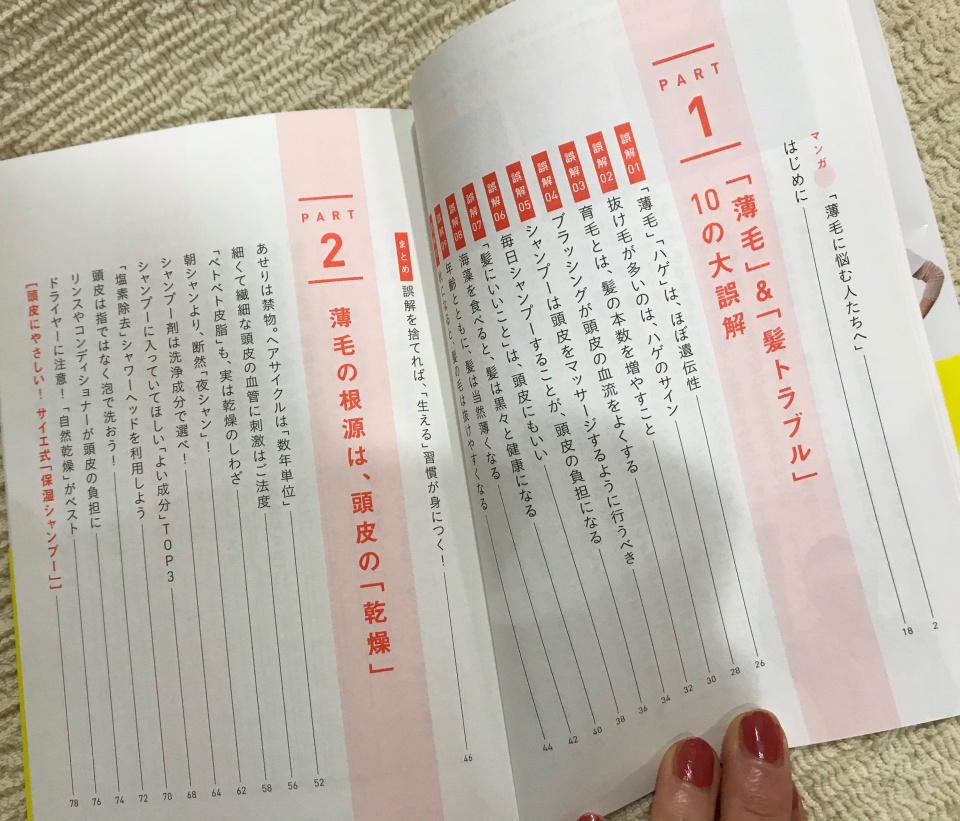 マンガ 「薄毛に悩む人たちへ」 2
はじめに 18
PART 1
「薄毛」&「髪トラブル」
10の大誤解
誤解01 「薄毛」「ハゲ」は、ほぼ遺伝性 26
誤解02 抜け毛が多いのは、ハゲのサイン 28
誤解03 育毛とは、髪の本数を増やすこと 30
誤解04 ブラッシングが頭皮の血流をよくする 32
誤解05 シャンプーは頭皮をマッサージするように行うべき 34
誤解06 毎日シャンプーすることが、頭皮の負担になる 36
誤解07 「髪にいいこと」は、頭皮にもいい 38
誤解08 海藻を食べると、髪は黒々と健康になる 40
誤解09 年齢とともに、髪は当然薄くなる 42
になると、髪の毛は抜けやすくなる 44
まとめ 誤解を捨てれば、「生える」習慣が身につく! 46
PART 2
薄毛の根源は、頭皮の「乾燥」
あせりは禁物。ヘアサイクルは「数年単位」 52
細くて繊細な頭皮の血管に刺激はご法度 56
「ベトベト皮脂」も、実は乾燥のしわざ 58
朝シャンより、断然「夜シャン」! 62
シャンプー剤は洗浄成分で選べ! 64
シャンプーに入っていてほしい「よい成分」TOP3 68
「塩素除去」シャワーヘッドを利用しよう 70
頭皮は指ではなく泡で洗おう! 72
リンスやコンディショナーが頭皮の負担に 74
ドライヤーに注意!「自然乾燥」がベスト 76
[頭皮にやさしい! サイエ式「保湿シャンプー」] 78